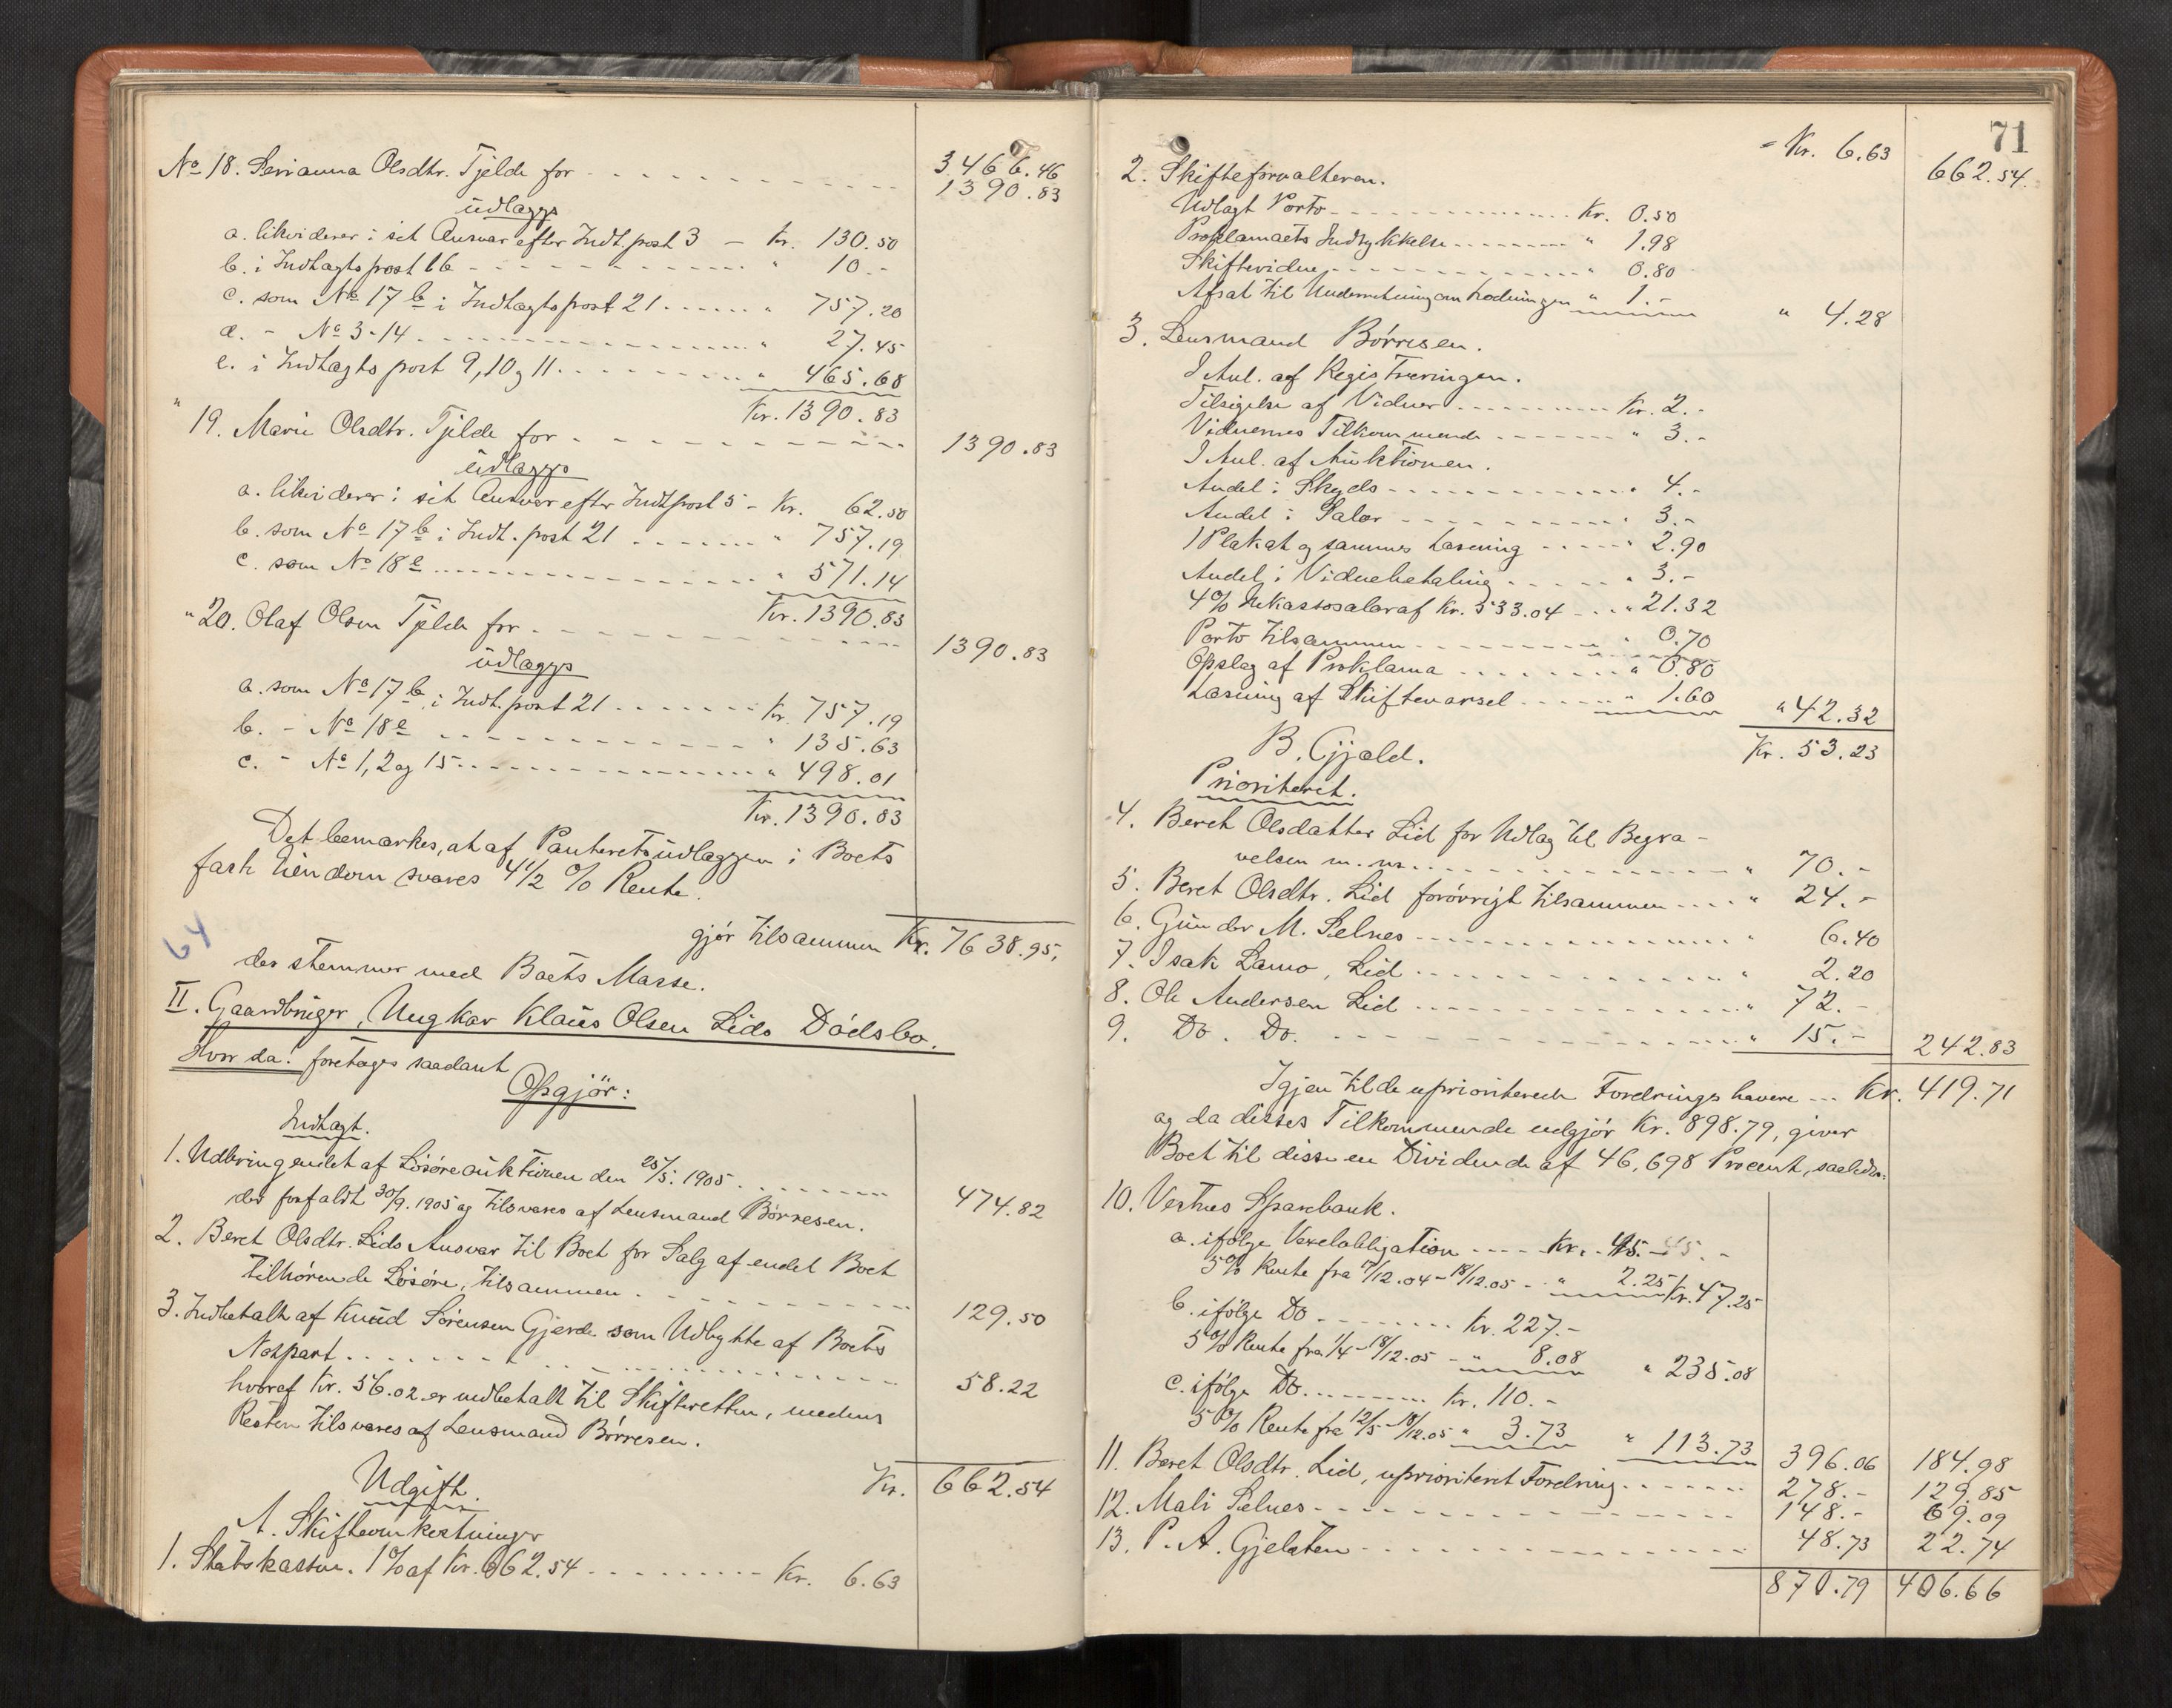 3466.46
No 18. Serianna Olsdtr. Tjelde for 1390.83
udlægges
a. likviderer i sit Ansvar efter Indt. post 3 - Kr. 130.50
b. i Indtægtspost 16 " 10.-
c. som No 17 b i Indtægtspost 21 " 757.20
d. - No 3-14 " 27.45
e. i Indtægts post 9, 10 og 11 " 465.68
Kr. 1390.83
" 19. Marie Olsdtr. Tjelde for 1390.83
udlægges
a. likviderer i sit Ansvar efter Indt post 5 - Kr. 62.50
b. som No 17 b i Indt. post 21 " 757.19
c. som No 18 e " 571.14
Kr. 1390.83
" 20. Olaf Olsen Tjelde for 1390.83
udlægges
a. som No 17 b i Indt. post 21 Kr. 757.19
b. - No 18 e " 135.63
c. - No 1, 2 og 15 " 498.01
Kr. 1390.83
Det bemærkes, at af Panteretsudlæggen i Boets
faste Eiendom svares 4 1/2 % Rente.
gjør tilsammen Kr. 7638.95,
64
der stemmer med Boets Masse.
II. Gaardbruger, Ungkar Klaus Olsen Lids Dødsbo.
Hvor da: foretages saadant
Opgjør:
Indtægt.
1. Udbringendet af Løsøreauktionen den 25/5. 1905
der forfaldt 30/9. 1905 og tilsvares af Lensmand Børresen. 474.82
2. Beret Olsdtr. Lids Ansvar til Boet for Salg af endel Boet
tilhørende Løsøre, tilsammen 129.50
3. Indbetalt af Knud Sørensen Gjerde som Udbytte af Boets
Notpart 58.22
hvoraf Kr. 56.02 er indbetalt til Skifteretten, medens
Resten tilsvares af Lensmand Børresen.
Kr. 662.54
Udgift.
A. Skifteomkostninger
1. Statskassen. 1 % af Kr. 662.54 Kr. 6.63
71
= Kr. 6.63 662.54.
2. Skifteforvalteren.
Udlagt Porto Kr. 0.50
Proklamaets Indrykkelse " 1.98
Skiftevidne " 0.80
Afsat til Underretning om Lodningen " 1.- " 4.28
3. Lensmand Børresen.
I Anl. af Registreringen.
Tilsigelse af Vidner Kr. 2.-
Vidnernes Tilkommende " 3.-
I Anl. af Auktionen.
Andel i Skyds " 4.-
Andel i Salær " 3.-
1 Plakat og sammes Læsning " 2.90
Andel i Vidnebetaling " 3.-
4 % Inkassosalær af Kr. 533.04 " 21.32
Porto tilsammen " 0.70
Opslag af Proklama " 0.80
Læsning af Skiftevarsel " 1.60 " 42.32
B. Gjæld. Kr. 53.23
Prioriteret.
4. Beret Olsdatter Lid for Udlæg til Begra-
velsen m. m. " 70.-
5. Beret Olsdtr. Lid forøvrigt tilsammen " 24.-
6. Gunder M. Selnes " 6.40
7. Isak Lamo, Lid " 2.20
8. Ole Andersen Lid " 72.-
9. Do. Do. " 15.- 242.83
Igjen til de uprioriterede Fordringshavere Kr. 419.71
og da disses Tilkommende udgjør Kr. 898.79, giver
Boet til disse en Dividende af 46,698 Procent, saaledes:
10. Vestnes Sparebank.
a. ifølge Vexelobligation Kr. 45.-
5 % Rente fra 17/12.04 - 18/12.05 " 2.25 Kr. 47.25
b. ifølge Do Kr. 227.-
5 % Rente fra 1/4 - 18/12.05 " 8.08 " 235.08
c. ifølge Do. Kr. 110.-
5 % Rente fra 12/5 - 18/12.05 " 3.73 " 113.73 396.06 184.98
11. Beret Olsdtr. Lid, uprioriteret Fordring 278.- 129.85
12. Mali Selnes 148.- 69.09
13. P. A. Gjelsten 48.73 22.74
870.79 406.66